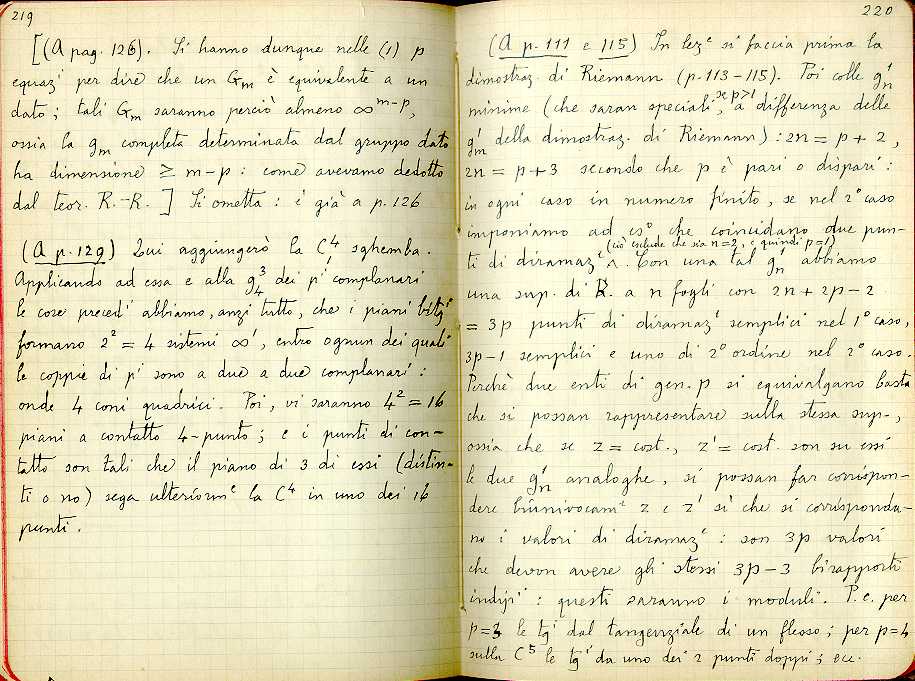 219
[(A pag. 126). Si hanno dunque nelle (1) p
equazⁱ per dire che un Gₘ è equivalente a un
dato; tali Gₘ saranno perciò almeno ∞ᵐ⁻ᵖ,
ossia la gₘ completa determinata dal gruppo dato
ha dimensione ≥ m-p: come avevamo dedotto
dal teor. R.-R.] Si ometta: è già a p. 126
(A p. 129) Qui aggiungerò la C⁴ sghemba.
Applicando ad essa e alla g₄³ dei pⁱ complanari
le cose precedⁱ abbiamo, anzi tutto, che i piani bitgⁱ
formano 2² = 4 sistemi ∞¹, entro ognun dei quali
le coppie di pⁱ sono a due a due complanari:
onde 4 coni quadrici. Poi, vi saranno 4² = 16
piani a contatto 4-punto; e i punti di con-
tatto son tali che il piano di 3 di essi (distin-
ti o no) sega ulteriormᵉ la C⁴ in uno dei 16
punti.
220
(A p. 111 e 115) In lezᵉ si faccia prima la
dimostraz. di Riemann (p. 113-115). Poi colle gₙ¹
minime (che saran speciali, se p>1, a differenza delle
gₘ¹ della dimostraz. di Riemann): 2n = p + 2,
2n = p+3 secondo che p è pari o dispari:
in ogni caso in numero finito, se nel 2° caso
imponiamo ad es° che coincidano due pun-
ti di diramazᵉ (ciò esclude che sia n=2, e quindi p=1). Con una tal gₙ¹ abbiamo
una sup. di R. a n fogli con 2n + 2p - 2
= 3p punti di diramazᵉ semplici nel 1° caso,
3p-1 semplici e uno di 2° ordine nel 2° caso.
Perchè due enti di gen. p si equivalgano basta
che si possan rappresentare sulla stessa sup.,
ossia che se z = cost., z' = cost. son su essi
le due gₙ¹ analoghe, si possan far corrispon-
dere biunivocamᵉ z e z' sì che si corrisponda-
no i valori di diramazᵉ: son 3p valori
che devon avere gli stessi 3p-3 birapporti
indipⁱ: questi saranno i moduli. P. e. per
p=3 le tgⁱ dal tangenziale di un flesso; per p=4
sulla C⁵ le tgⁱ da uno dei 2 punti doppi; ecc.